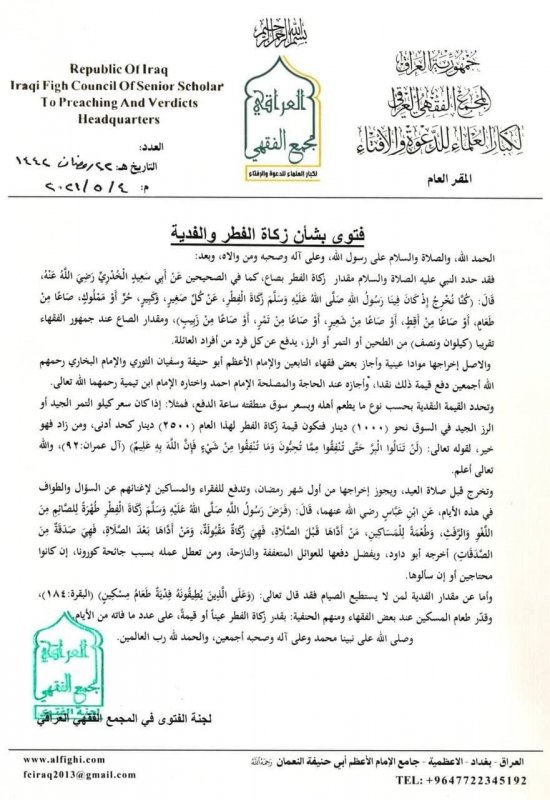 بسم الله الرحمن الرحيم
Republic Of Iraq
Iraqi Figh Council Of Senior Scholar
To Preaching And Verdicts
Headquarters
جمهورية العراق
المجمع الفقهي العراقي
لكبار العلماء للدعوة والافتاء
المقر العام
العراقي
مجمع الفقهي
لكبار العلماء للدعوة والإفتاء
العدد:
التاريخ هـ: ٢٢ رمضان ١٤٤٢
م: ٢٠٢١/٥/٤
فتوى بشأن زكاة الفطر والفدية
الحمد الله، والصلاة والسلام على رسول الله، وعلى آله وصحبه ومن والاه، وبعد:
فقد حدد النبي عليه الصلاة والسلام مقدار زكاة الفطر بصاع، كما في الصحيحين عَنْ أَبِي سَعِيدٍ الْخُدْرِيِّ رَضِيَ اللَّهُ عَنْهُ،
قَالَ: (كُنَّا نُخْرِجُ إِذْ كَانَ فِينَا رَسُولُ اللهِ صَلَّى اللهُ عَلَيْهِ وَسَلَّمَ زَكَاةَ الْفِطْرِ، عَنْ كُلِّ صَغِيرٍ، وَكَبِيرٍ، حُرٍّ أَوْ مَمْلُوكٍ، صَاعًا مِنْ
طَعَامٍ، أَوْ صَاعًا مِنْ أَقِطٍ، أَوْ صَاعًا مِنْ شَعِيرٍ، أَوْ صَاعًا مِنْ تَمْرٍ، أَوْ صَاعًا مِنْ زَبِيبٍ)، ومقدار الصاع عند جمهور الفقهاء
تقريبا (كيلوان ونصف) من الطحين أو التمر أو الرز، يدفع عن كل فرد من أفراد العائلة.
والاصل إخراجها موادا عينية وأجاز بعض فقهاء التابعين والإمام الأعظم أبو حنيفة وسفيان الثوري والإمام البخاري رحمهم
الله أجمعين دفع قيمة ذلك نقدا، وأجازه عند الحاجة والمصلحة الإمام احمد واختاره الإمام ابن تيمية رحمهما الله تعالى.
وتحدد القيمة النقدية بحسب نوع ما يطعم أهله وبسعر سوق منطقته ساعة الدفع، فمثلا: إذا كان سعر كيلو التمر الجيد أو
الرز الجيد في السوق نحو (١٠٠٠) دينار فتكون قيمة زكاة الفطر لهذا العام (٢٥٠٠) دينار كحد أدنى، ومن زاد فهو
خير، لقوله تعالى: (لَنْ تَنَالُوا الْبِرَّ حَتَّى تُنْفِقُوا مِمَّا تُحِبُّونَ وَمَا تُنْفِقُوا مِنْ شَيْءٍ فَإِنَّ اللَّهَ بِهِ عَلِيمٌ) (آل عمران:٩٢)، والله
تعالى أعلم.
وتخرج قبل صلاة العيد، ويجوز إخراجها من أول شهر رمضان، وتدفع للفقراء والمساكين لإغنائهم عن السؤال والطواف
في هذه الأيام، عَنِ ابْنِ عَبَّاسٍ رضي الله عنهما، قَالَ: (فَرَضَ رَسُولُ اللَّهِ صَلَّى اللهُ عَلَيْهِ وَسَلَّمَ زَكَاةَ الْفِطْرِ طُهْرَةً لِلصَّائِمِ مِنَ
اللَّغْوِ وَالرَّفَثِ، وَطُعْمَةً لِلْمَسَاكِينِ، مَنْ أَدَّاهَا قَبْلَ الصَّلَاةِ، فَهِيَ زَكَاةٌ مَقْبُولَةٌ، وَمَنْ أَدَّاهَا بَعْدَ الصَّلَاةِ، فَهِيَ صَدَقَةٌ مِنَ
الصَّدَقَاتِ) أخرجه أبو داود، ويفضل دفعها للعوائل المتعففة والنازحة، ومن تعطل عمله بسبب جائحة كورونا، إن كانوا
محتاجين أو إن سألوها.
وأما عن مقدار الفدية لمن لا يستطيع الصيام فقد قال تعالى: (وَعَلَى الَّذِينَ يُطِيقُونَهُ فِدْيَةٌ طَعَامُ مِسْكِينٍ) (البقرة:١٨٤)،
وقدّر طعام المسكين عند بعض الفقهاء ومنهم الحنفية: بقدر زكاة الفطر عيناً أو قيمةً، على عدد ما فاته من الأيام.
وصلى الله على نبينا محمد وعلى آله وصحبه أجمعين، والحمد لله رب العالمين.
العراقي
مجمع الفقهي
لجنة الفتوى
لجنة الفتوى في المجمع الفقهي العراقي
www.alfighi.com
fciraq2013@gmail.com
العراق - بغداد - الاعظمية - جامع الإمام الأعظم أبي حنيفة النعمان رَحِمَهُ اللَّهُ
TEL: +9647722345192